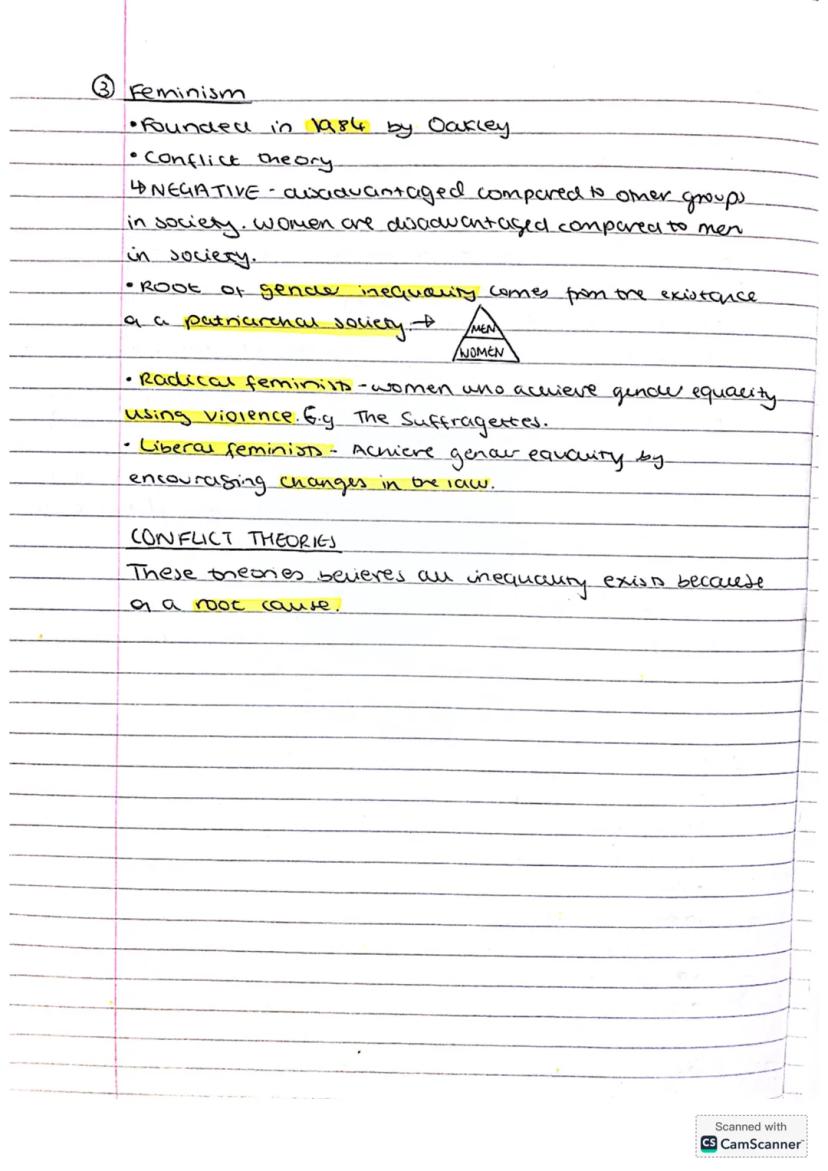 ③ Feminism
• Founded in 1984 by Oakley
• Conflict theory
↳ NEGATIVE - disadvantaged compared to other groups
in society. Women are disadvantaged compared to men
in society.
• ROOT of gender inequality comes from the existance
of a patriarchal society →
MEN
WOMEN
• Radical feminists - women who achieve gender equality
using violence. E.g The Suffragettes.
• Liberal feminists - Achieve gender equality by
encouraging changes in the law.
CONFLICT THEORIES
These theories believes all inequality exists because
of a root cause.
Scanned with
CS CamScanner